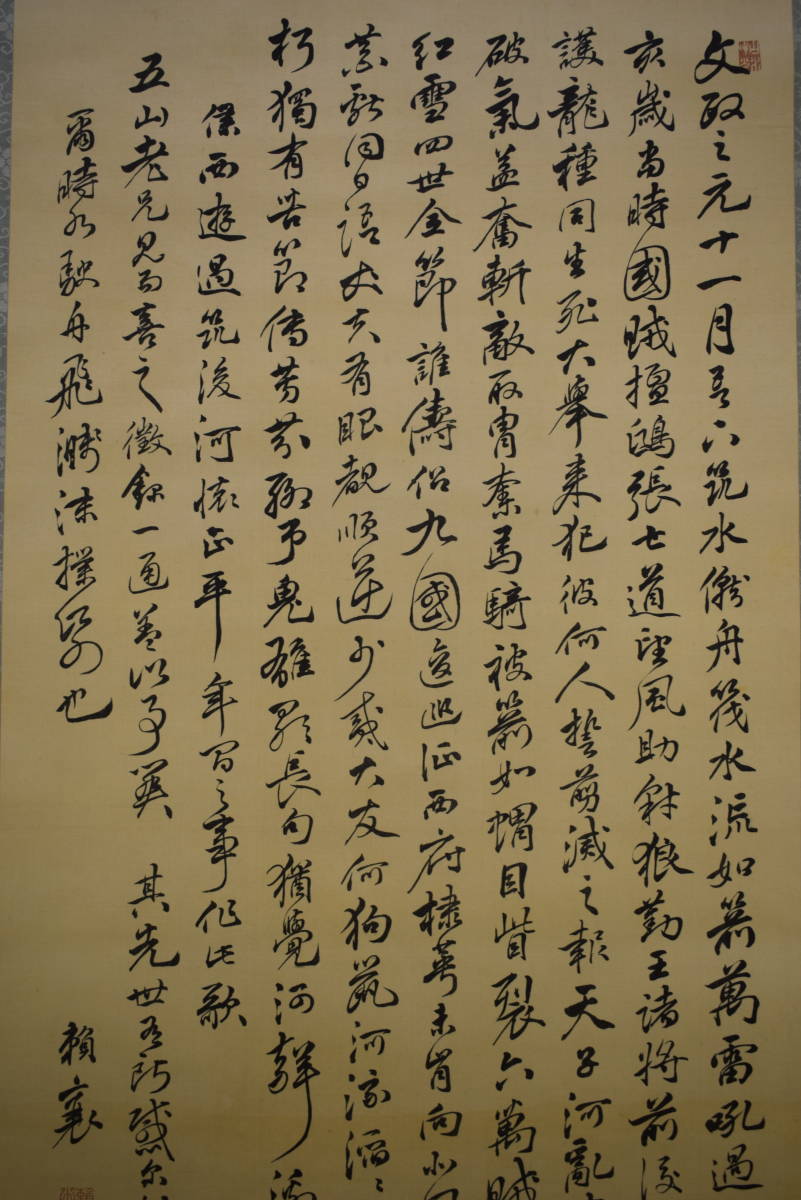 文政之元十一月吾下筑水僦舟筏水流如箭萬雷吼過
亥歲當時國賊擅鴟張七道望風助豺狼勤王諸將前後
護龍種同生死大舉来犯彼何人誓剪滅之報天子河亂
破氣益奮斬敵取冑奪馬騎被箭如蝟目眥裂六萬賊
紅雪四世全節誰儔侶九國逡巡征西府棣萼未肯向北
恭献同日語丈夫有眼覩順逆少貳大友何狗鼠河流滔々
朽獨有苦節傳芳芬聊弔鬼雄歌長句猶覺河聲激
僕西遊過筑後河懷正平年間之事作此歌
五山老兄見而喜之徵錄一通蓋以 其先世有所感
爾時水駛舟飛濺沫撲 也
賴襄